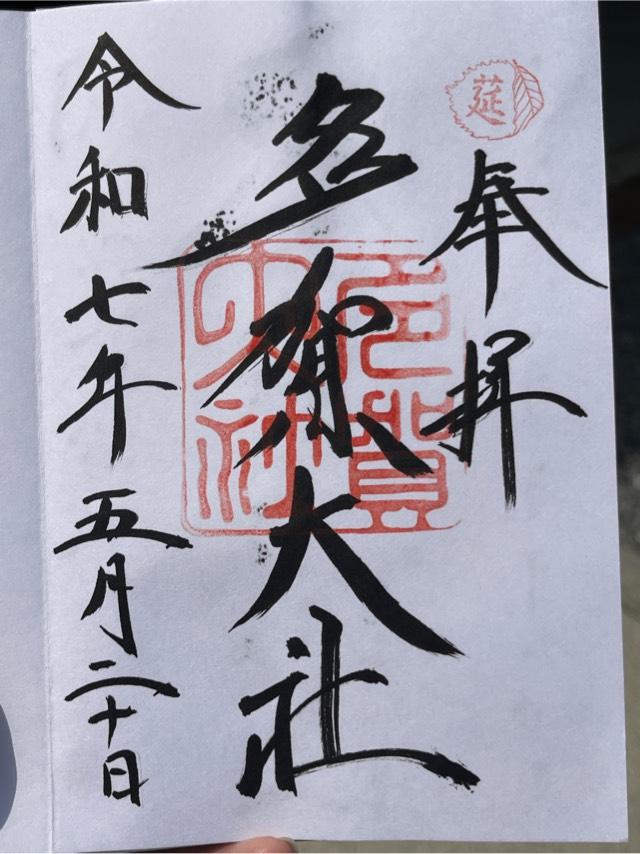 莚
奉拝
多賀大社
多賀大社
令和七年五月二十日